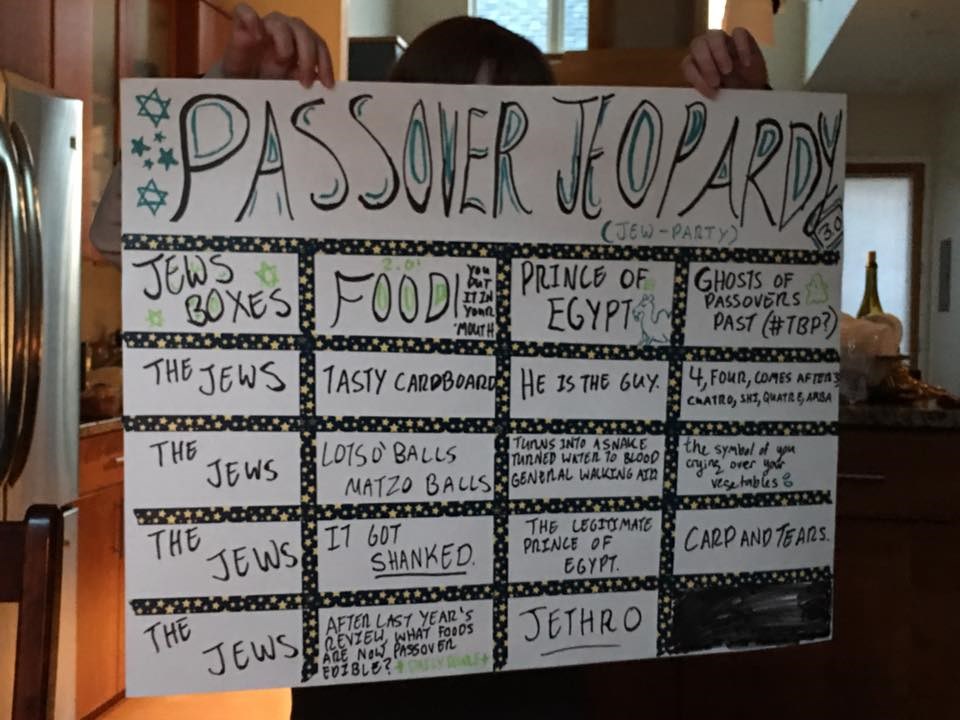 PASSOVER JEOPARDY
(JEW-PARTY)
3.0
JEWS
BOXES
2.0!
FOOD!
YOU
PUT
IT IN
YOUR
MOUTH
PRINCE OF
EGYPT
GHOSTS OF
PASSOVERS
PAST (#TBP?)
THE JEWS
TASTY CARDBOARD
HE IS THE GUY.
4, FOUR, COMES AFTER 3
CUATRO, SHI, QUATRE, ARBA
THE
JEWS
LOTS O' BALLS
MATZO BALLS
TURNS INTO A SNAKE
TURNED WATER TO BLOOD
GENERAL WALKING AID
the symbol of you
crying over your
vegetables
THE
JEWS
IT GOT
SHANKED.
THE LEGITIMATE
PRINCE OF
EGYPT.
CARP AND TEARS.
THE
JEWS
AFTER LAST YEAR'S
REVIEW, WHAT FOODS
ARE NOW PASSOVER
EDIBLE? *DAILY DOUBLE*
JETHRO